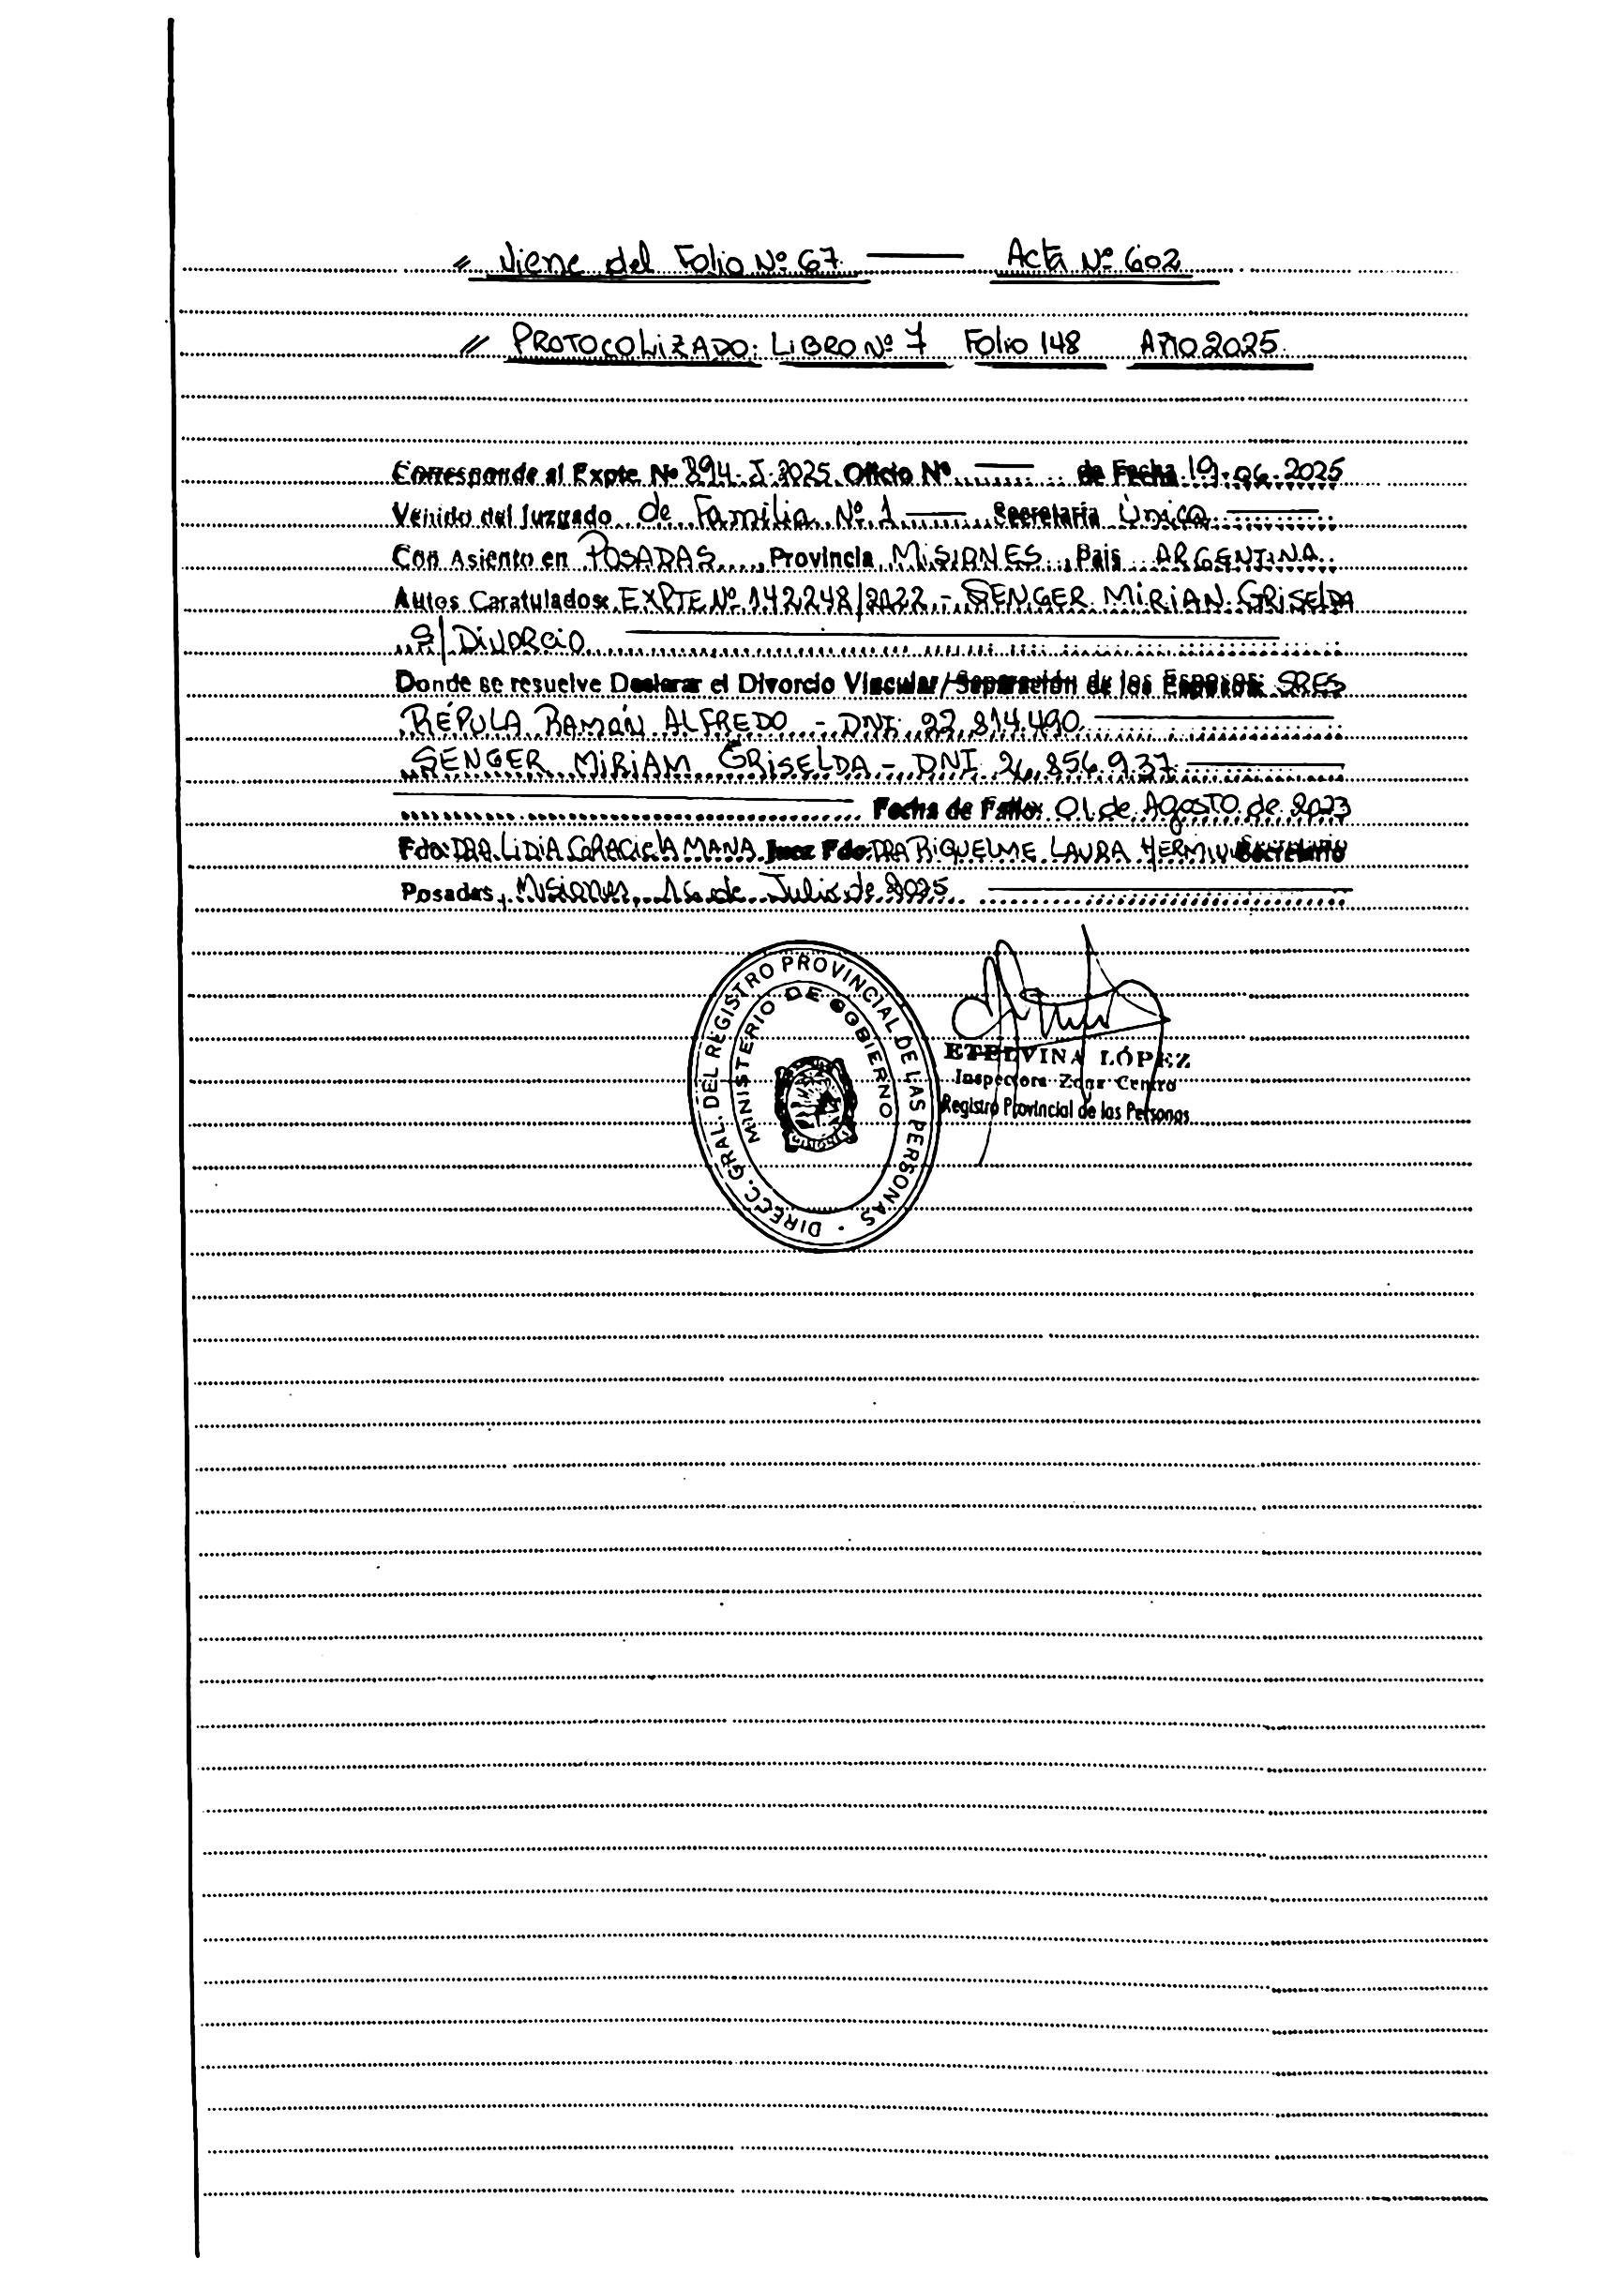 // Viene del Folio Nº 67. —— Acta Nº 602
// PROTOCOLIZADO: LIBRO Nº 7 Folio 148 AÑO 2025.
Corresponde al Expte Nº 894-J-2025 Oficio Nº —— de Fecha 19-06-2025
Venido del Juzgado de Familia Nº 1 —— Secretaría Única
Con Asiento en POSADAS, Provincia MISIONES, Pais ARGENTINA.
Autos Caratulados: EXPTE Nº 142248/2022 - SENGER MIRIAN GRISELDA
S/ DIVORCIO
Donde se resuelve Declarar el Divorcio Vincular/Separación de los Esposos: SRES
RÉPULA RAMÓN ALFREDO - DNI: 22.814.490
SENGER MIRIAM GRISELDA - DNI 26.856.937
Fecha de Fallo: 01 de AGOSTO de 2023
Fdo: DRA. LIDIA GRACIELA MANA Juez Fdo: DRA RIQUELME LAURA Secretario
Posadas, Misiones, 16 de Julio de 2025
DIRECC. GRAL. DEL REGISTRO PROVINCIAL DE LAS PERSONAS
MINISTERIO DE GOBIERNO
MISIONES
ETELVINA LÓPEZ
Inspectora Zona Centro
Registro Provincial de las Personas